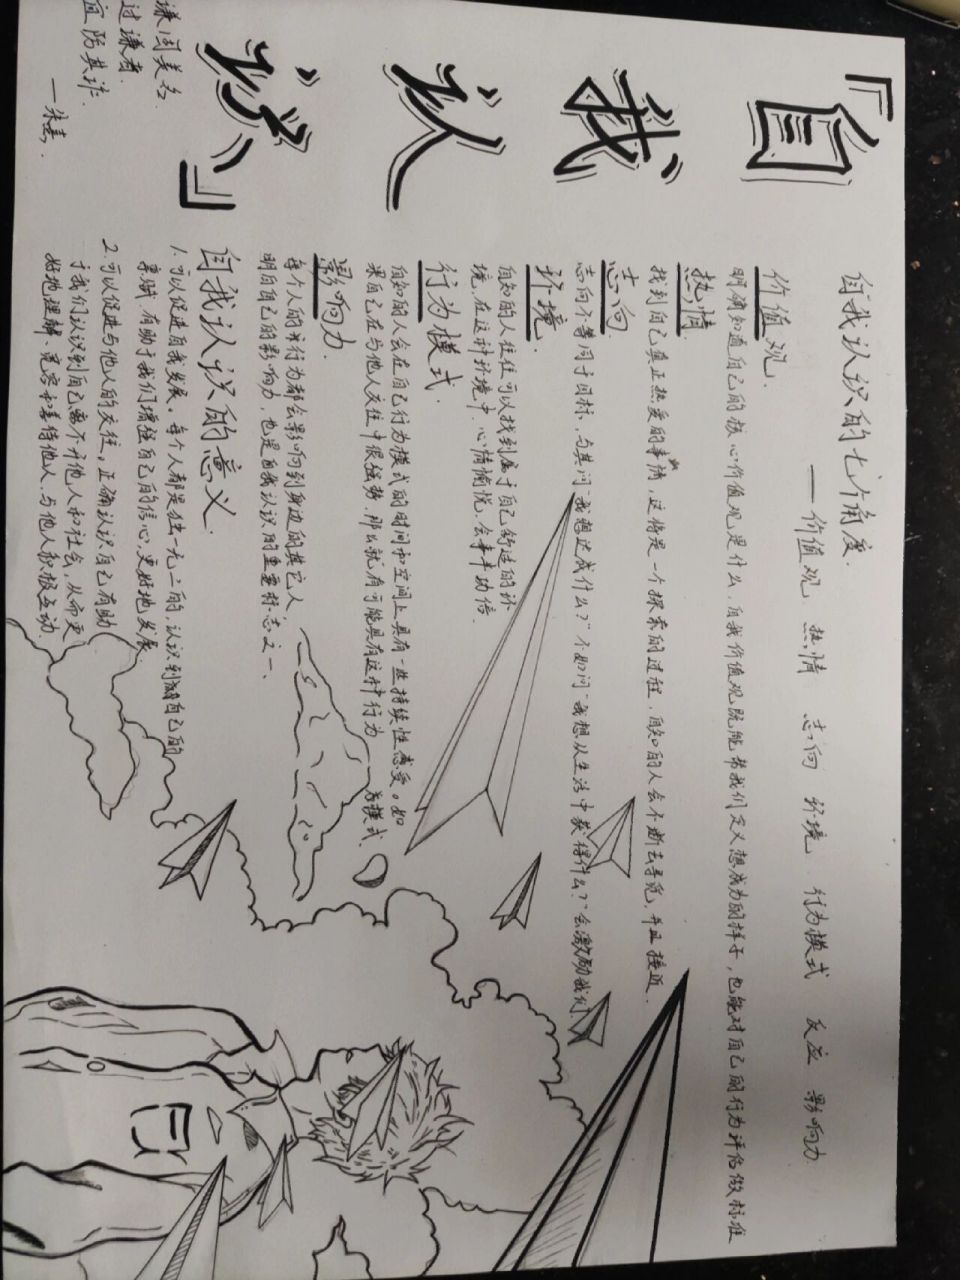 「自我认识」
谦固美名
过谦者
宜防其诈
—朱熹.
自我认识的七个角度.
——价值观 热情 志向 环境 行为模式 反应 影响力
价值观.
明确知道自己的核心价值观是什么,自我价值观既能帮我们定义想成为的样子,也能对自己的行为评估做标准
热情
找到自己真正热爱的事情,这将是一个探索的过程,自知的人会不断去寻觅,并且接近.
志向.
志向不等同于目标,与其问“我想达成什么?”不如问“我想从生活中获得什么?”会激励我们
环境.
自知的人往往可以找到属于自己舒适的环
境,在这种环境中,心情愉悦,会事半功倍.
行为模式.
自知的人会在自己行为模式的时间和空间上具有一些持续性感受。如
果自己在与他人交往中很强势,那么就有可能具有这种行为
为模式.
影响力.
每个人的行为都会影响到身边的其它人
明白自己的影响力,也是自我认识的重要标志之一、
自我认识的意义.
1.可以促进自我发展。每个人都是独一无二的,认识到自己的
有助于我们增强自己的信心,更好地发展.
2.可以促进与他人的交往。正确认识自己有助
于我们认识到自己离不开他人和社会,从而更
好地理解、宽容和善待他人,与他人积极互动.